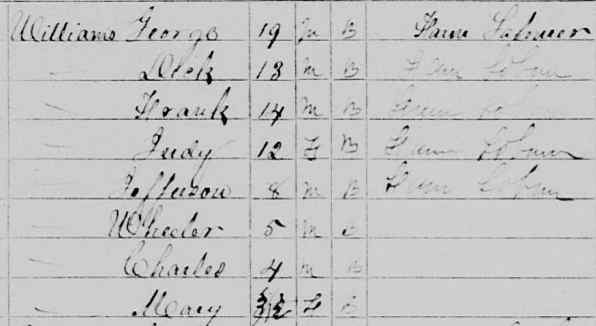 Williams George 19 M B Farm Laborer
— Dick 18 M B Farm Labor
— Frank 14 M B Farm Labor
— Judy 12 F B Farm Labor
— Jefferson 8 M B Farm Labor
— Wheeler 5 M B
— Charles 4 M B
— Mary F B